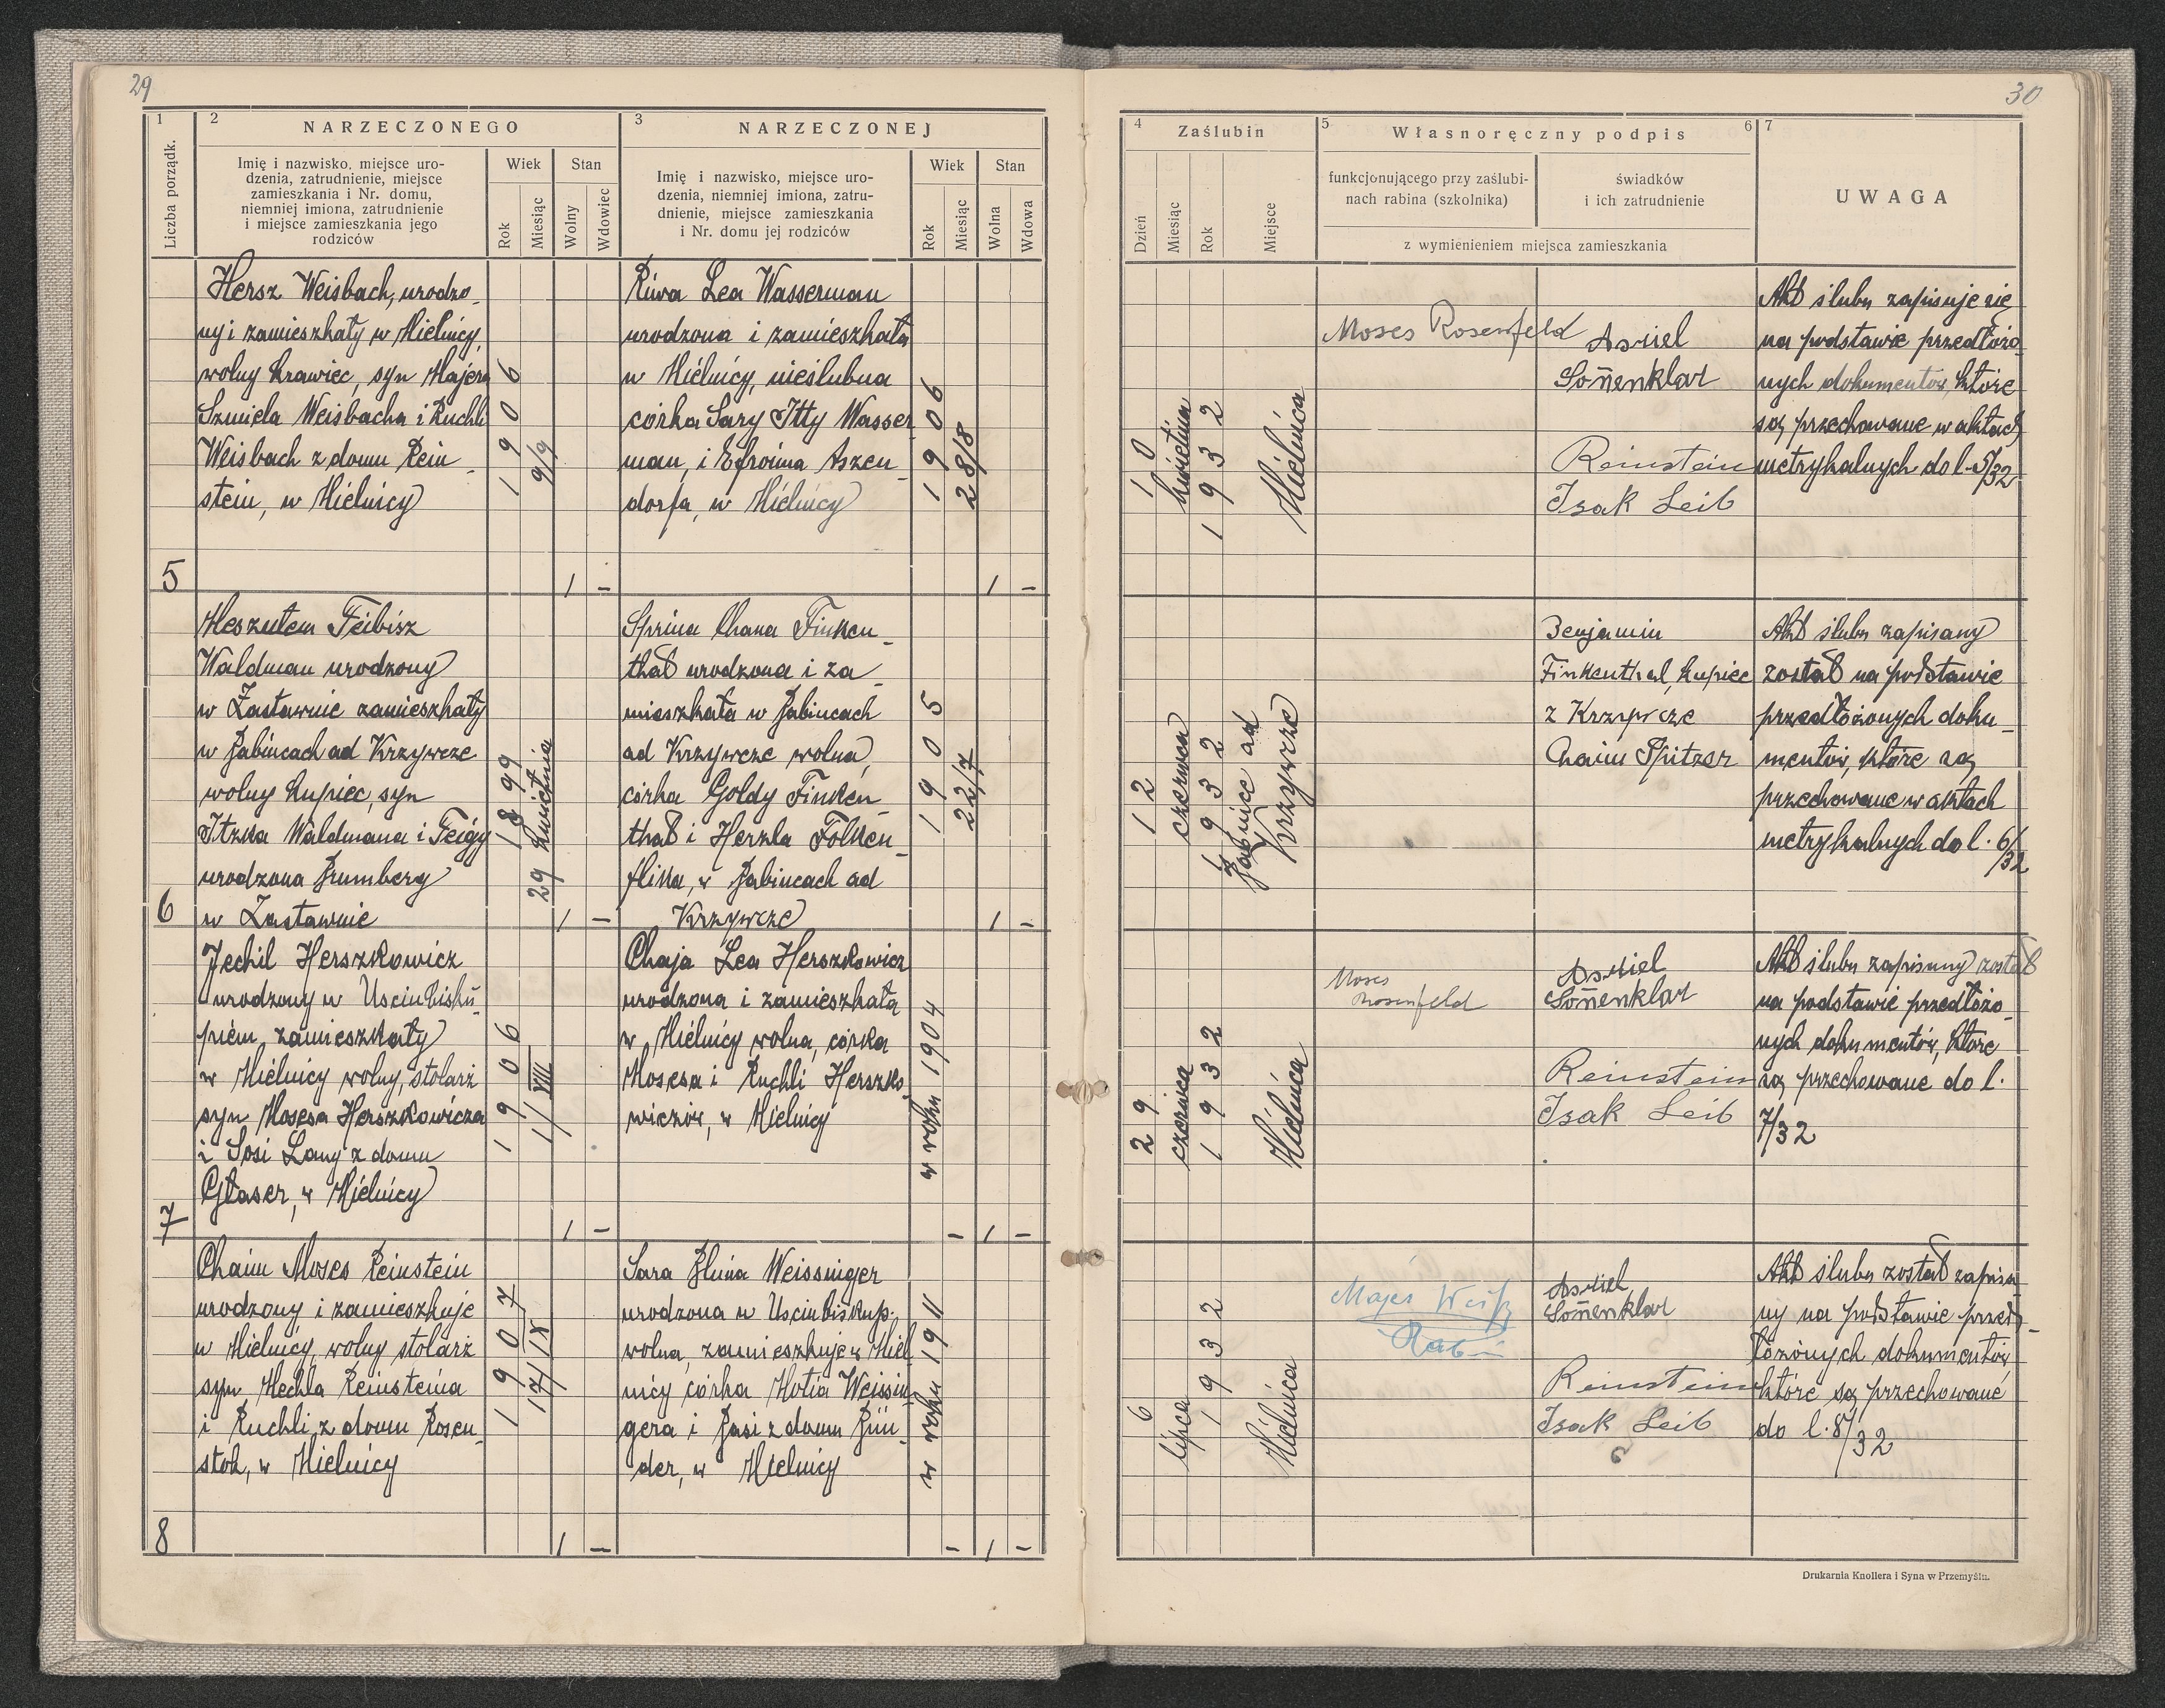 29
1
2
NARZECZONEGO
3
NARZECZONEJ
Liczba porządk.
Imię i nazwisko, miejsce uro-
dzenia, zatrudnienie, miejsce
zamieszkania i Nr. domu,
niemniej imiona, zatrudnienie
i miejsce zamieszkania jego
rodziców
Wiek
Stan
Rok
Miesiąc
Wolny
Wdowiec
Imię i nazwisko, miejsce uro-
dzenia, niemniej imiona, zatru-
dnienie, miejsce zamieszkania
i Nr. domu jej rodziców
Wiek
Stan
Rok
Miesiąc
Wolna
Wdowa
Hersz Weisbach, urodzo-
ny i zamieszkały w Mielnicy,
wolny krawiec, syn Majera
Szmiela Weisbacha i Ruchli
Weisbach z domu Rein-
stein, w Mielnicy
1906
9/9
1 –
Riwa Lea Wasserman
urodzona i zamieszkała
w Mielnicy, nieślubna
córka Sary Itty Wasser
man, i Efroima Aszen-
dorfa, w Mielnicy
1906
28/8
1 –
5
Meszulem Feibisz
Waldman urodzony
w Zastawnie zamieszkały
w Babincach ad Krzywcze
wolny kupiec, syn
Itzka Waldmana i Feigy
urodzona Brumberg
w Zastawnie
1899
29 kwietnia
1 –
Sprina Chana Finken-
thal urodzona i za-
mieszkała w Babincach
ad Krzywcze wolna,
córka Goldy Finken-
thal i Herzla Folken-
flika, w Babincach ad
Krzywcze
1905
22/7
1 –
6
Jechil Herszkowicz
urodzony w Usciubisku-
piem, zamieszkały
w Mielnicy wolny, stolarz
syn Mosesa Herszkowicza
i Sosi Lany z domu
Glaser, w Mielnicy
1906
1/VIII
1 –
Chaja Lea Herszkowicz
urodzona i zamieszkała
w Mielnicy wolna, córka
Mosesa i Ruchli Herszko
wiczów, w Mielnicy
w roku 1904
– 1 –
7
Chaim Moses Reinstein
urodzony i zamieszkuje
w Mielnicy, wolny stolarz
syn Mechla Reinsteina
i Ruchli z domu Rosen-
stok, w Mielnicy
1907
17/IX
1 –
Sara Blima Weissinger
urodzona w Usciubiskup.
wolna, zamieszkuje w Miel
nicy córka Motia Weissin
gera i Basi z domu Bin-
der, w Mielnicy
w roku 1911
– 1 –
8
30
4
Zaślubin
5
Własnoręczny podpis
6
7
Dzień
Miesiąc
Rok
Miejsce
funkcjonującego przy zaślubi-
nach rabina (szkolnika)
świadków
i ich zatrudnienie
z wymienieniem miejsca zamieszkania
UWAGA
10
kwietnia
1932
Mielnica
Moses Rosenfeld
Asriel
Soñenklar
Reinstein
Isak Leib
Akt ślubu zapisuje się
na podstawie przedłożo
nych dokumentów, które
są przechowane w aktach
metrykalnych do l. 5/32
12
czerwca
1932
Babince ad
Krzywcze
Benjamin
Finkenthal, kupiec
z Krzywcze
Chaim Spitzer
Akt ślubu zapisany
został na podstawie
przedłożonych doku-
mentów, które są
przechowane w aktach
metrykalnych do l. 6/32
29
czerwca
1932
Mielnica
Moses
Rosenfeld
Asriel
Soñenklar
Reinstein
Isak Leib
Akt ślubu zapisany został
na podstawie przedłożo-
nych dokumentów, które
są przechowane do l.
7/32
6
lipca
1932
Mielnica
Asriel
Soñenklar
Reinstein
Isak Leib
Akt ślubu został zapisa
ny na podstawie przed-
łożonych dokumentów
które są przechowane
do l. 8/32
Drukarnia Knollera i Syna w Przemyślu.